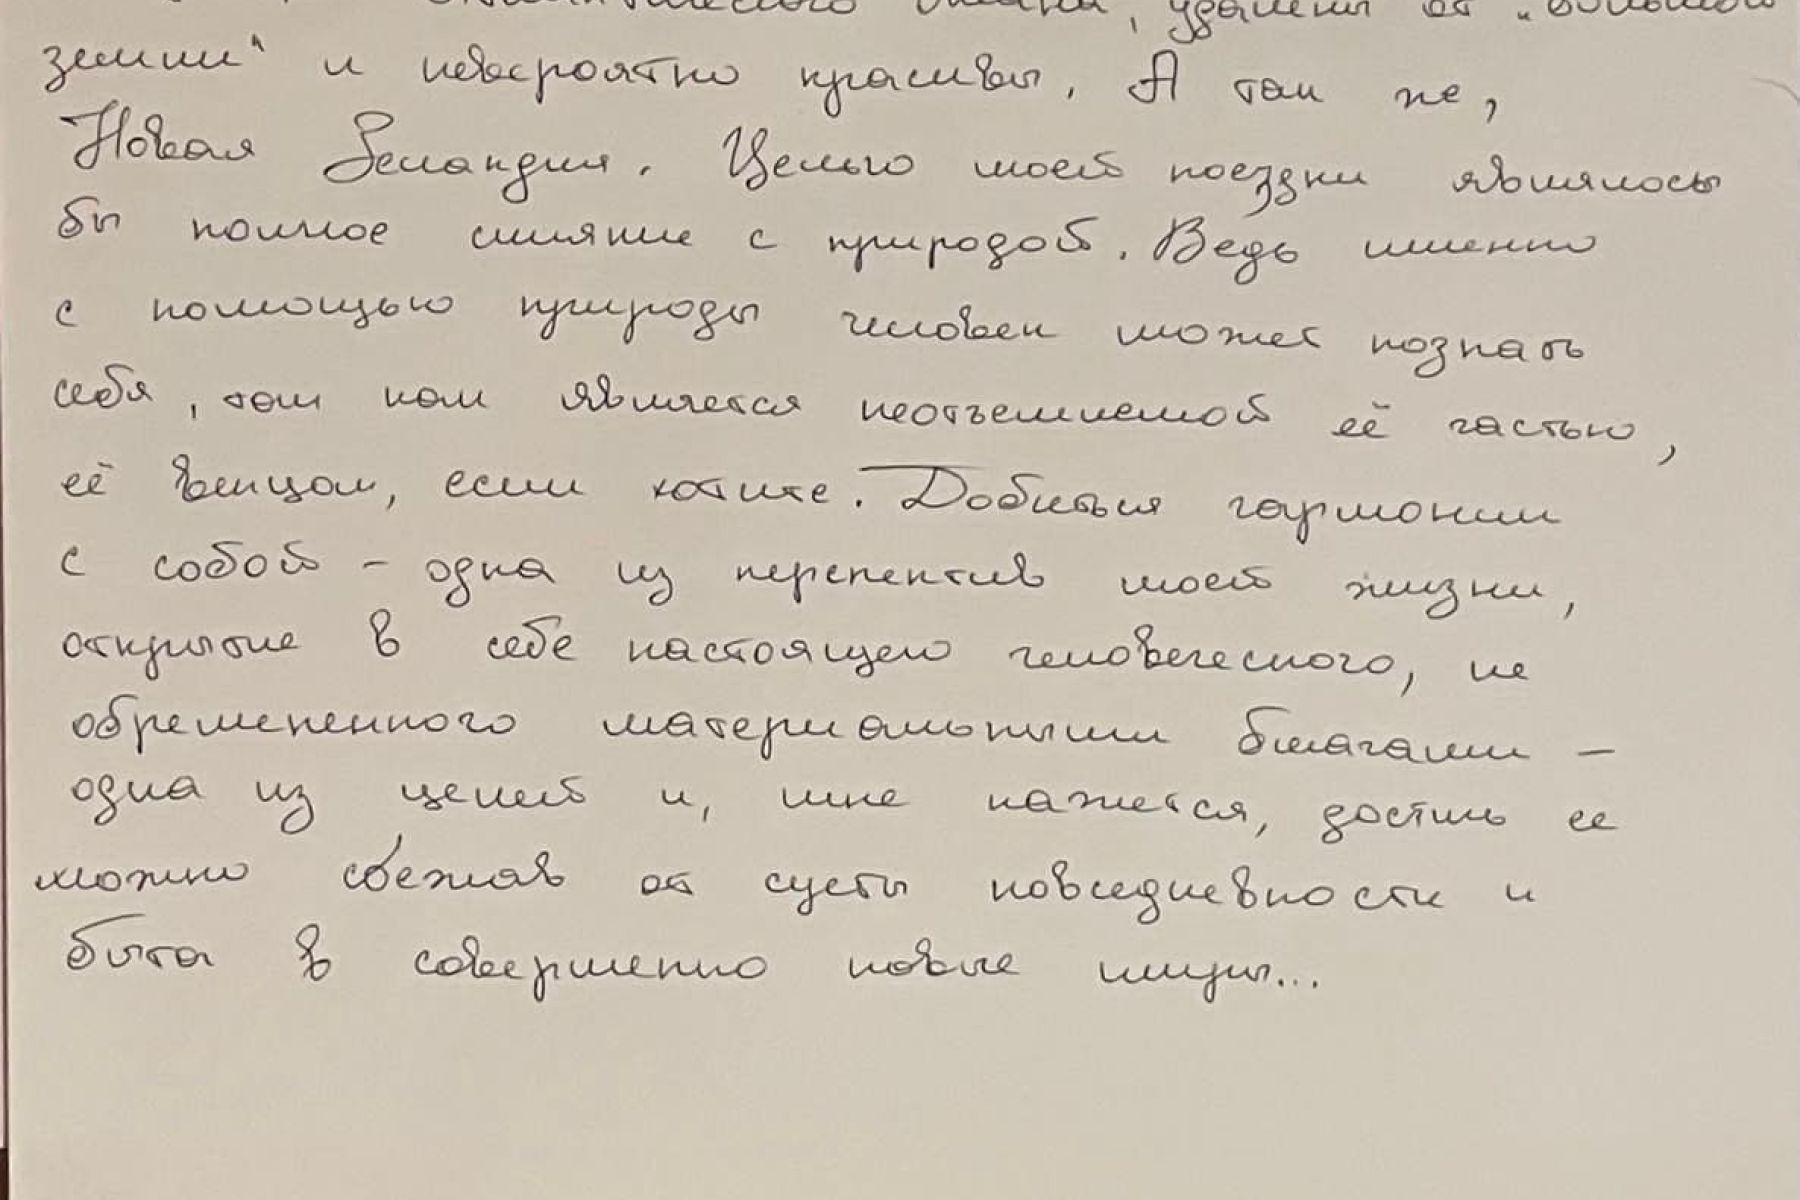 Атлантического океана, удалены от „большой
земли" и невероятно красивы. А так же,
Новая Зеландия. Целью моей поездки являлось
бы полное слияние с природой. Ведь именно
с помощью природы человек может познать
себя, так как является неотъемлемой её частью,
её венцом, если хотите. Добиться гармонии
с собой – одна из перспектив моей жизни,
открытие в себе настоящего человеческого, не
обремененного материальными благами –
одна из целей и, мне кажется, достичь ее
можно сбежав от суеты повседневности и
быта в совершенно новые миры...